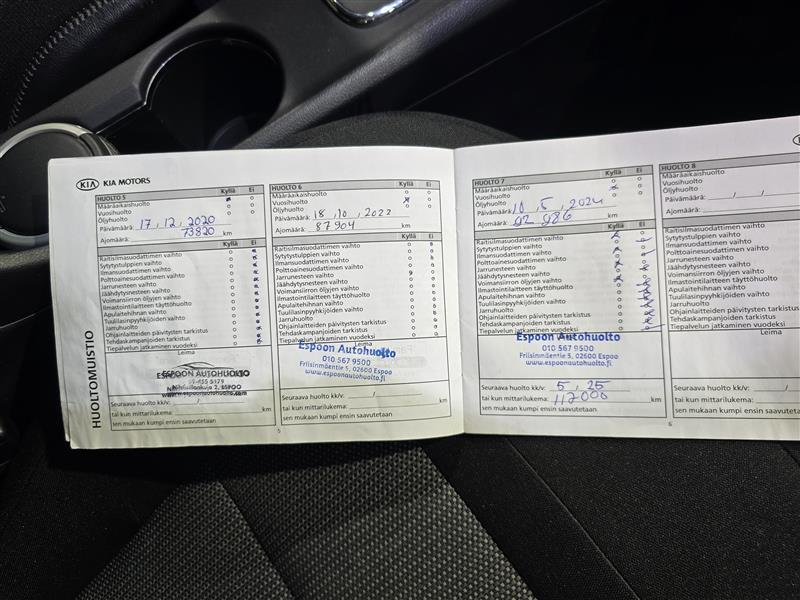 KIA KIA MOTORS
HUOLTOMUISTIO
HUOLTO 5 Kyllä Ei
Määräaikaishuolto
Vuosihuolto
Öljyhuolto
Päivämäärä: 17, 12, 2020
Ajomäärä: 73820 km
Kyllä Ei
Raitisilmasuodattimen vaihto
Sytytystulppien vaihto
Ilmansuodattimen vaihto
Polttoainesuodattimen vaihto
Jarrunesteen vaihto
Jäähdytysnesteen vaihto
Voimansiirron öljyjen vaihto
Ilmastointilaitteen täyttöhuolto
Apulaitehihnan vaihto
Tuulilasinpyyhkijöiden vaihto
Jarruhuolto
Ohjainlaitteiden päivitysten tarkistus
Tehdaskampanjoiden tarkistus
Tiepalvelun jatkaminen vuodeksi
Leima
ESPOON AUTOHUOLTO
2, ESPOO
www.espoonautohuolto.com
Seuraava huolto kk/v: /
tai kun mittarilukema: km
sen mukaan kumpi ensin saavutetaan
HUOLTO 6 Kyllä Ei
Määräaikaishuolto
Vuosihuolto
Öljyhuolto
Päivämäärä: 18, 10, 2022
Ajomäärä: 87904 km
Kyllä Ei
Raitisilmasuodattimen vaihto
Sytytystulppien vaihto
Ilmansuodattimen vaihto
Polttoainesuodattimen vaihto
Jarrunesteen vaihto
Jäähdytysnesteen vaihto
Voimansiirron öljyjen vaihto
Ilmastointilaitteen täyttöhuolto
Apulaitehihnan vaihto
Tuulilasinpyyhkijöiden vaihto
Jarruhuolto
Ohjainlaitteiden päivitysten tarkistus
Tehdaskampanjoiden tarkistus
Tiepalvelun jatkaminen vuodeksi
Leima
Espoon Autohuolto
010 567 9500
Friisinmäentie 5, 02600 Espoo
www.espoonautohuolto.fi
Seuraava huolto kk/v: /
tai kun mittarilukema: km
sen mukaan kumpi ensin saavutetaan
5
HUOLTO 7 Kyllä Ei
Määräaikaishuolto
Vuosihuolto
Öljyhuolto
Päivämäärä: 10, 5, 2024
Ajomäärä: 92 986 km
Kyllä Ei
Raitisilmasuodattimen vaihto
Sytytystulppien vaihto
Ilmansuodattimen vaihto
Polttoainesuodattimen vaihto
Jarrunesteen vaihto
Jäähdytysnesteen vaihto
Voimansiirron öljyjen vaihto
Ilmastointilaitteen täyttöhuolto
Apulaitehihnan vaihto
Tuulilasinpyyhkijöiden vaihto
Jarruhuolto
Ohjainlaitteiden päivitysten tarkistus
Tehdaskampanjoiden tarkistus
Tiepalvelun jatkaminen vuodeksi
Espoon Autohuolto
010 567 9500
Friisinmäentie 5, 02600 Espoo
www.espoonautohuolto.fi
Seuraava huolto kk/v: 5, 25
tai kun mittarilukema: 112000 km
sen mukaan kumpi ensin saavutetaan
HUOLTO 8
Määräaikaishuolto
Vuosihuolto
Öljyhuolto
Päivämäärä: / /
Ajomäärä:
Raitisilmasuodattimen vaihto
Sytytystulppien vaihto
Ilmansuodattimen vaihto
Polttoainesuodattimen vaihto
Jarrunesteen vaihto
Jäähdytysnesteen vaihto
Voimansiirron öljyjen vaihto
Ilmastointilaitteen täyttöhuolto
Apulaitehihnan vaihto
Tuulilasinpyyhkijöiden vaihto
Jarruhuolto
Ohjainlaitteiden päivitysten tarkistus
Tehdaskampanjoiden tarkistus
Tiepalvelun jatkaminen vuodeksi
Leima
Seuraava huolto kk/v: /
tai kun mittarilukema:
sen mukaan kumpi ensin saavutetaan
6